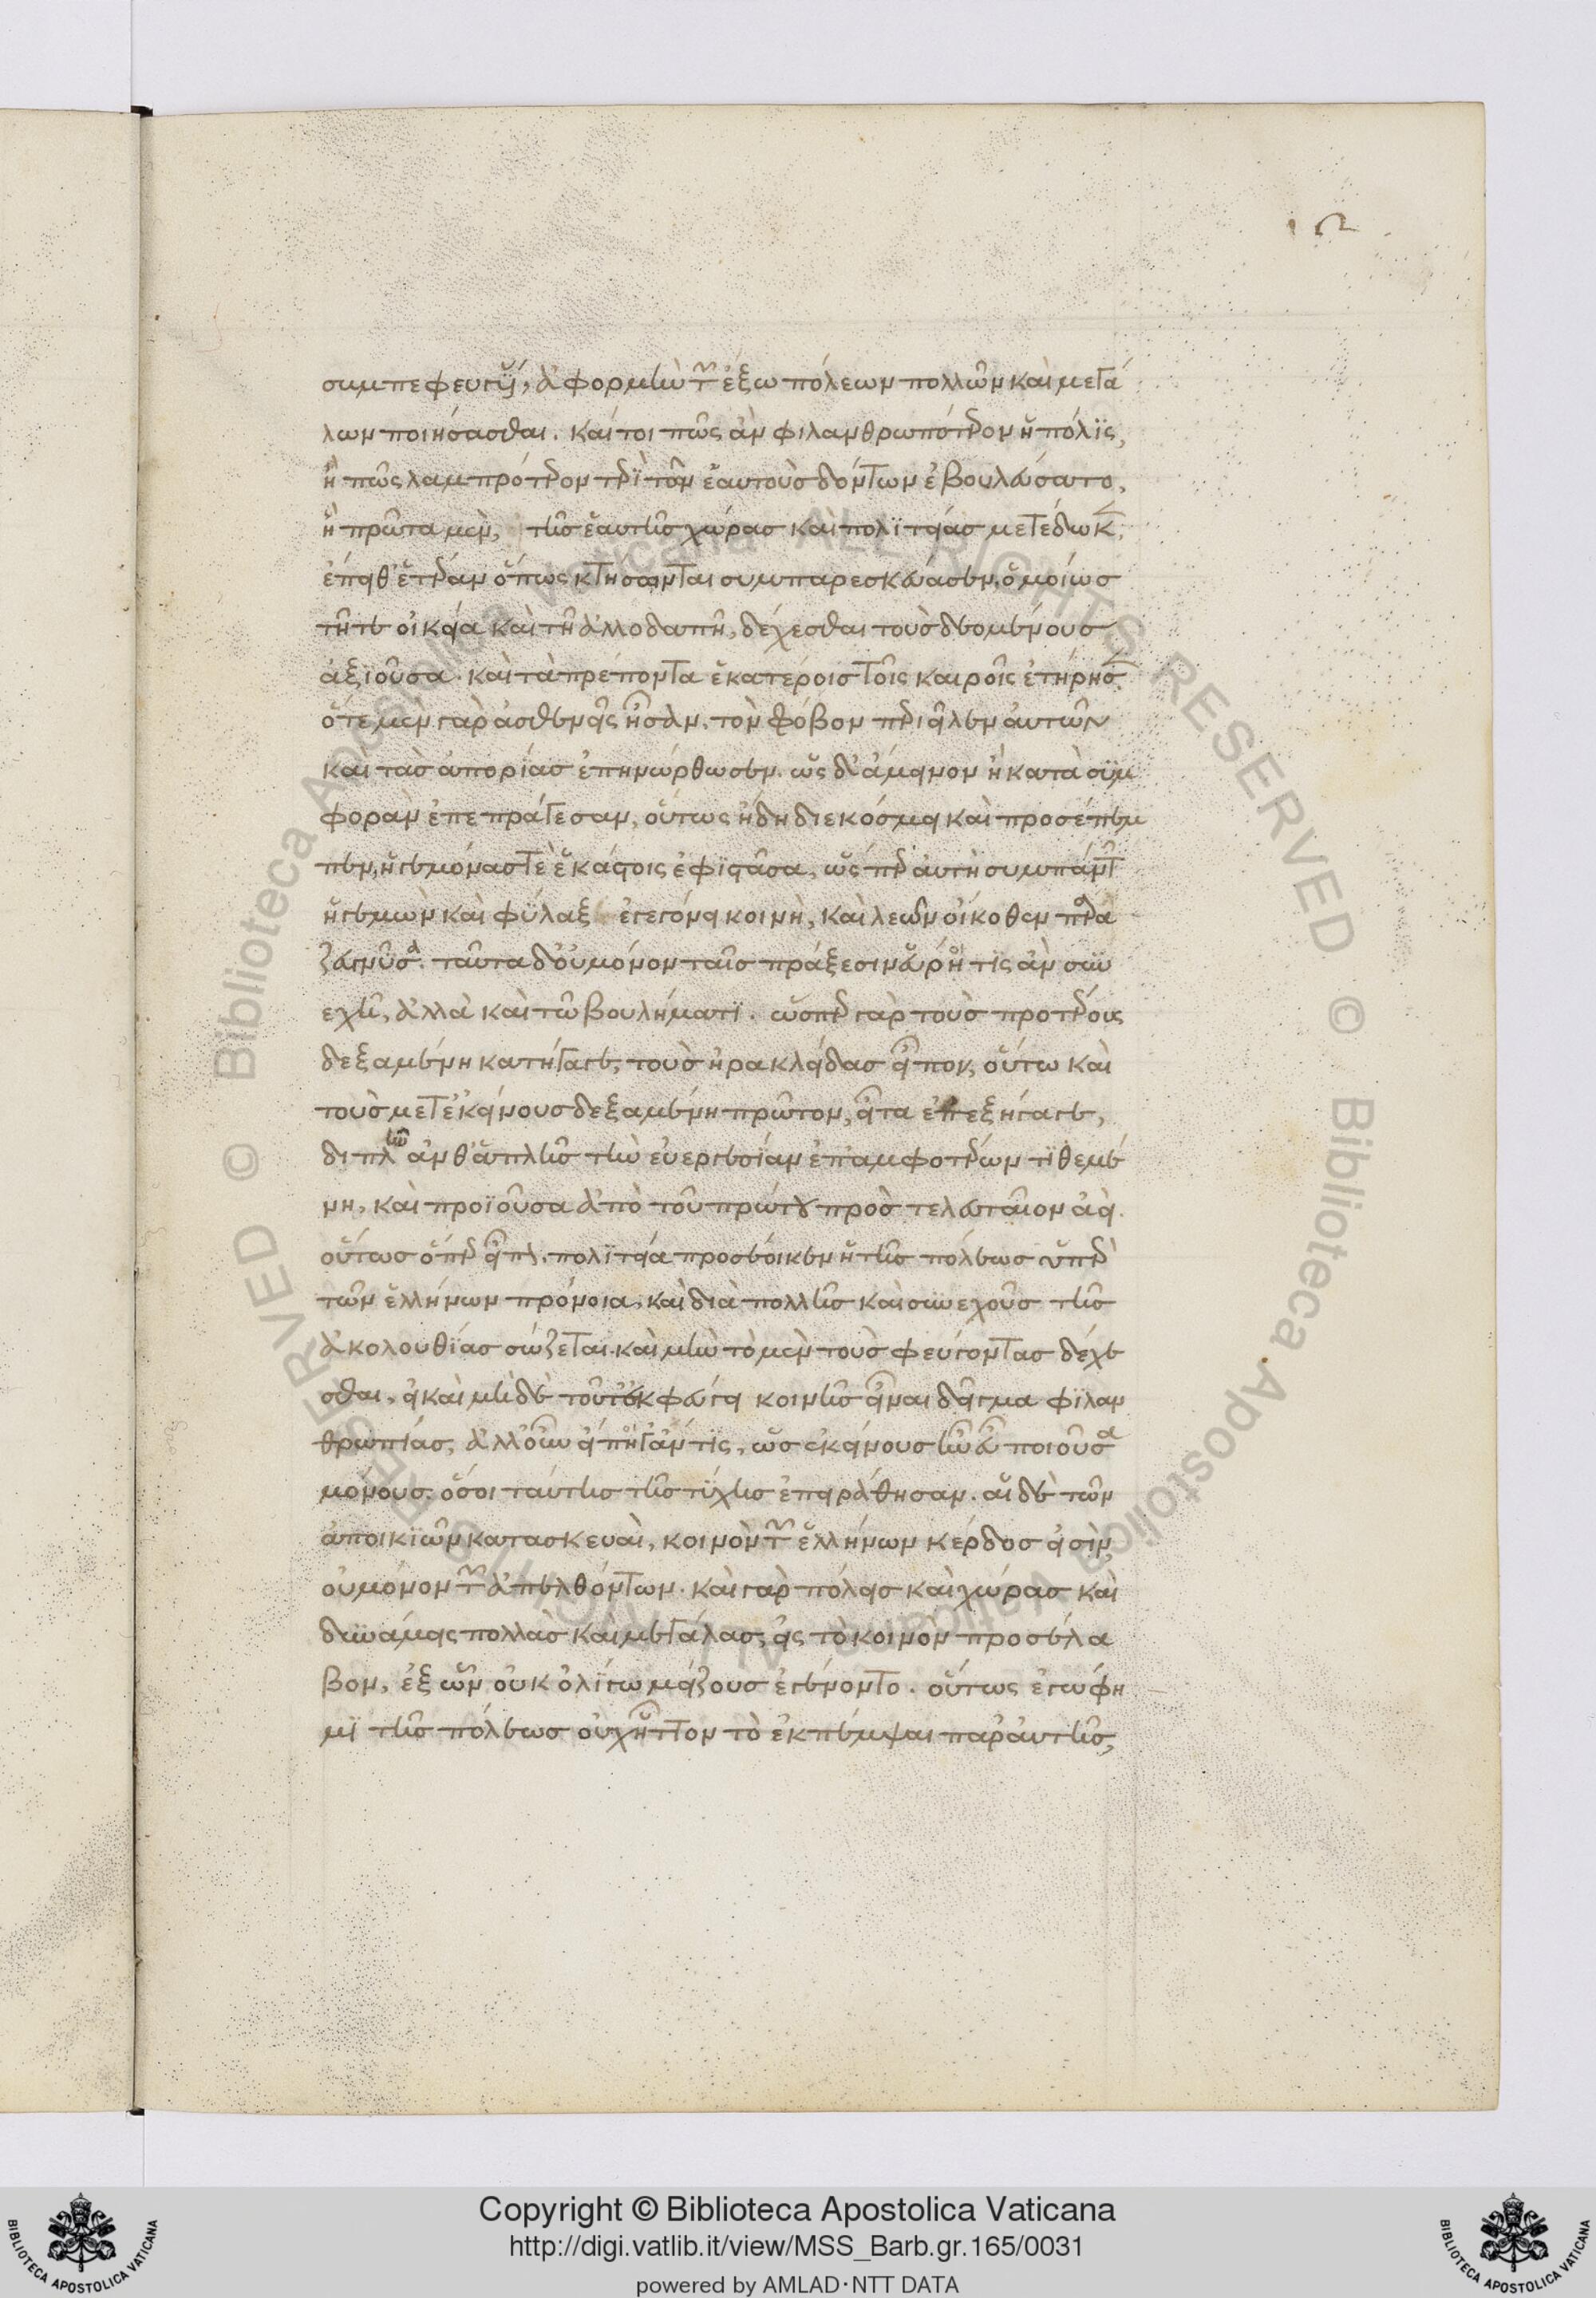 ιϛ
συμπεφευγὸς, ἀφορμὴν τῶν ἔξω πόλεων πολλῶν καὶ μεγά
λων ποιήσασθαι. καί τοι πῶς ἂν φιλανθρωπότερον ἡ πόλις,
ἢ πῶς λαμπρότερον περὶ τῶν ἑαυτοὺς δόντων ἐβουλεύσατο,
ἣ πρῶτα μὲν, τῆς ἑαυτῆς χώρας καὶ πολιτείας μετέδωκεν,
ἔπειθ' ἑτέραν ὅπως κτήσωνται συμπαρεσκεύασεν, ὁμοίως
τῆ τε οἰκεία καὶ τῆ ἀλλοδαπῆ, δέχεσθαι τοὺς δεομένους
ἀξιοῦσα. καὶ τὰ πρέποντα ἑκατέροις τοῖς καιροῖς ἐτήρησεν.
ὅτε μὲν γὰρ ἀσθενεῖς ἦσαν, τὸν φόβον περιεῖλεν αὐτῶν
καὶ τὰς ἀπορίας ἐπηνώρθωσεν. ὡς δ' ἄμεινον ἢ κατὰ συμ
φορὰν ἐπεπράγεσαν, οὕτως ἤδη διεκόσμει καὶ προσέπεμ
πεν, ἡγεμόνας τὲ ἑκάστοις ἐφιστᾶσα, ὥσπερ αὐτὴ συμπάντων
ἡγεμὼν καὶ φύλαξ ἐγεγόνει κοινὴ, καὶ λεὼν οἴκοθεν παρα
ζευγνῦσα. ταῦτα δ' οὐ μόνον ταῖς πράξεσιν εὕροι τις ἂν συν
εχῆ, ἀλλὰ καὶ τῶ βουλήματι. ὥσπερ γὰρ τοὺς προτέρους
δεξαμένη κατήγαγε, τοὺς ἡρακλείδας εἶπον, οὕτω καὶ
τοὺς μετ' ἐκείνους δεξαμένη πρῶτον, εἶτα ἐπεξήγαγε,
διπλῆν ἀνθ' ἁπλῆς τὴν εὐεργεσίαν ἐπ' ἀμφοτέρων τιθεμέ
νη, καὶ προϊοῦσα ἀπὸ τοῦ πρώτου πρὸς τελευταῖον ἀεὶ.
οὕτως ὅπερ εἶπον, πολιτεία προσέοικεν ἡ τῆς πόλεως ὑπὲρ
τῶν ἑλλήνων πρόνοια, καὶ διὰ πολλῆς καὶ συνεχοῦς τῆς
ἀκολουθίας σώζεται. καὶ μὴν τὸ μὲν τοὺς φεύγοντας δέχε
σθαι, εἰ καὶ μηδὲ τοῦτ' ἐκφεύγει κοινῆς εἶναι δεῖγμα φιλαν
θρωπίας, ἀλλ' οὖν εἴποι γ' ἄν τις, ὡς ἐκείνους ἦν εὖ ποιοῦσα
μόνους. ὅσοι ταύτης τῆς τύχης ἐπειράθησαν. αἱ δὲ τῶν
ἀποικιῶν κατασκευαὶ, κοινὸν τῶν ἑλλήνων κέρδος εἰσὶν,
οὐ μόνον τῶν ἀπελθόντων. καὶ γὰρ πόλεις καὶ χώρας καὶ
δυνάμεις πολλὰς καὶ μεγάλας, εἰς τὸ κοινὸν προσέλα
βον, ἐξ ὧν οὐκ ὀλίγω μείζους ἐγένοντο. οὕτως ἐγώ φη
μι τῆς πόλεως οὐχ ἧττον τὸ ἐκπέμψαι παρ' αὐτῆς,
Copyright © Biblioteca Apostolica Vaticana
http://digi.vatlib.it/view/MSS_Barb.gr.165/0031
powered by AMLAD·NTT DATA